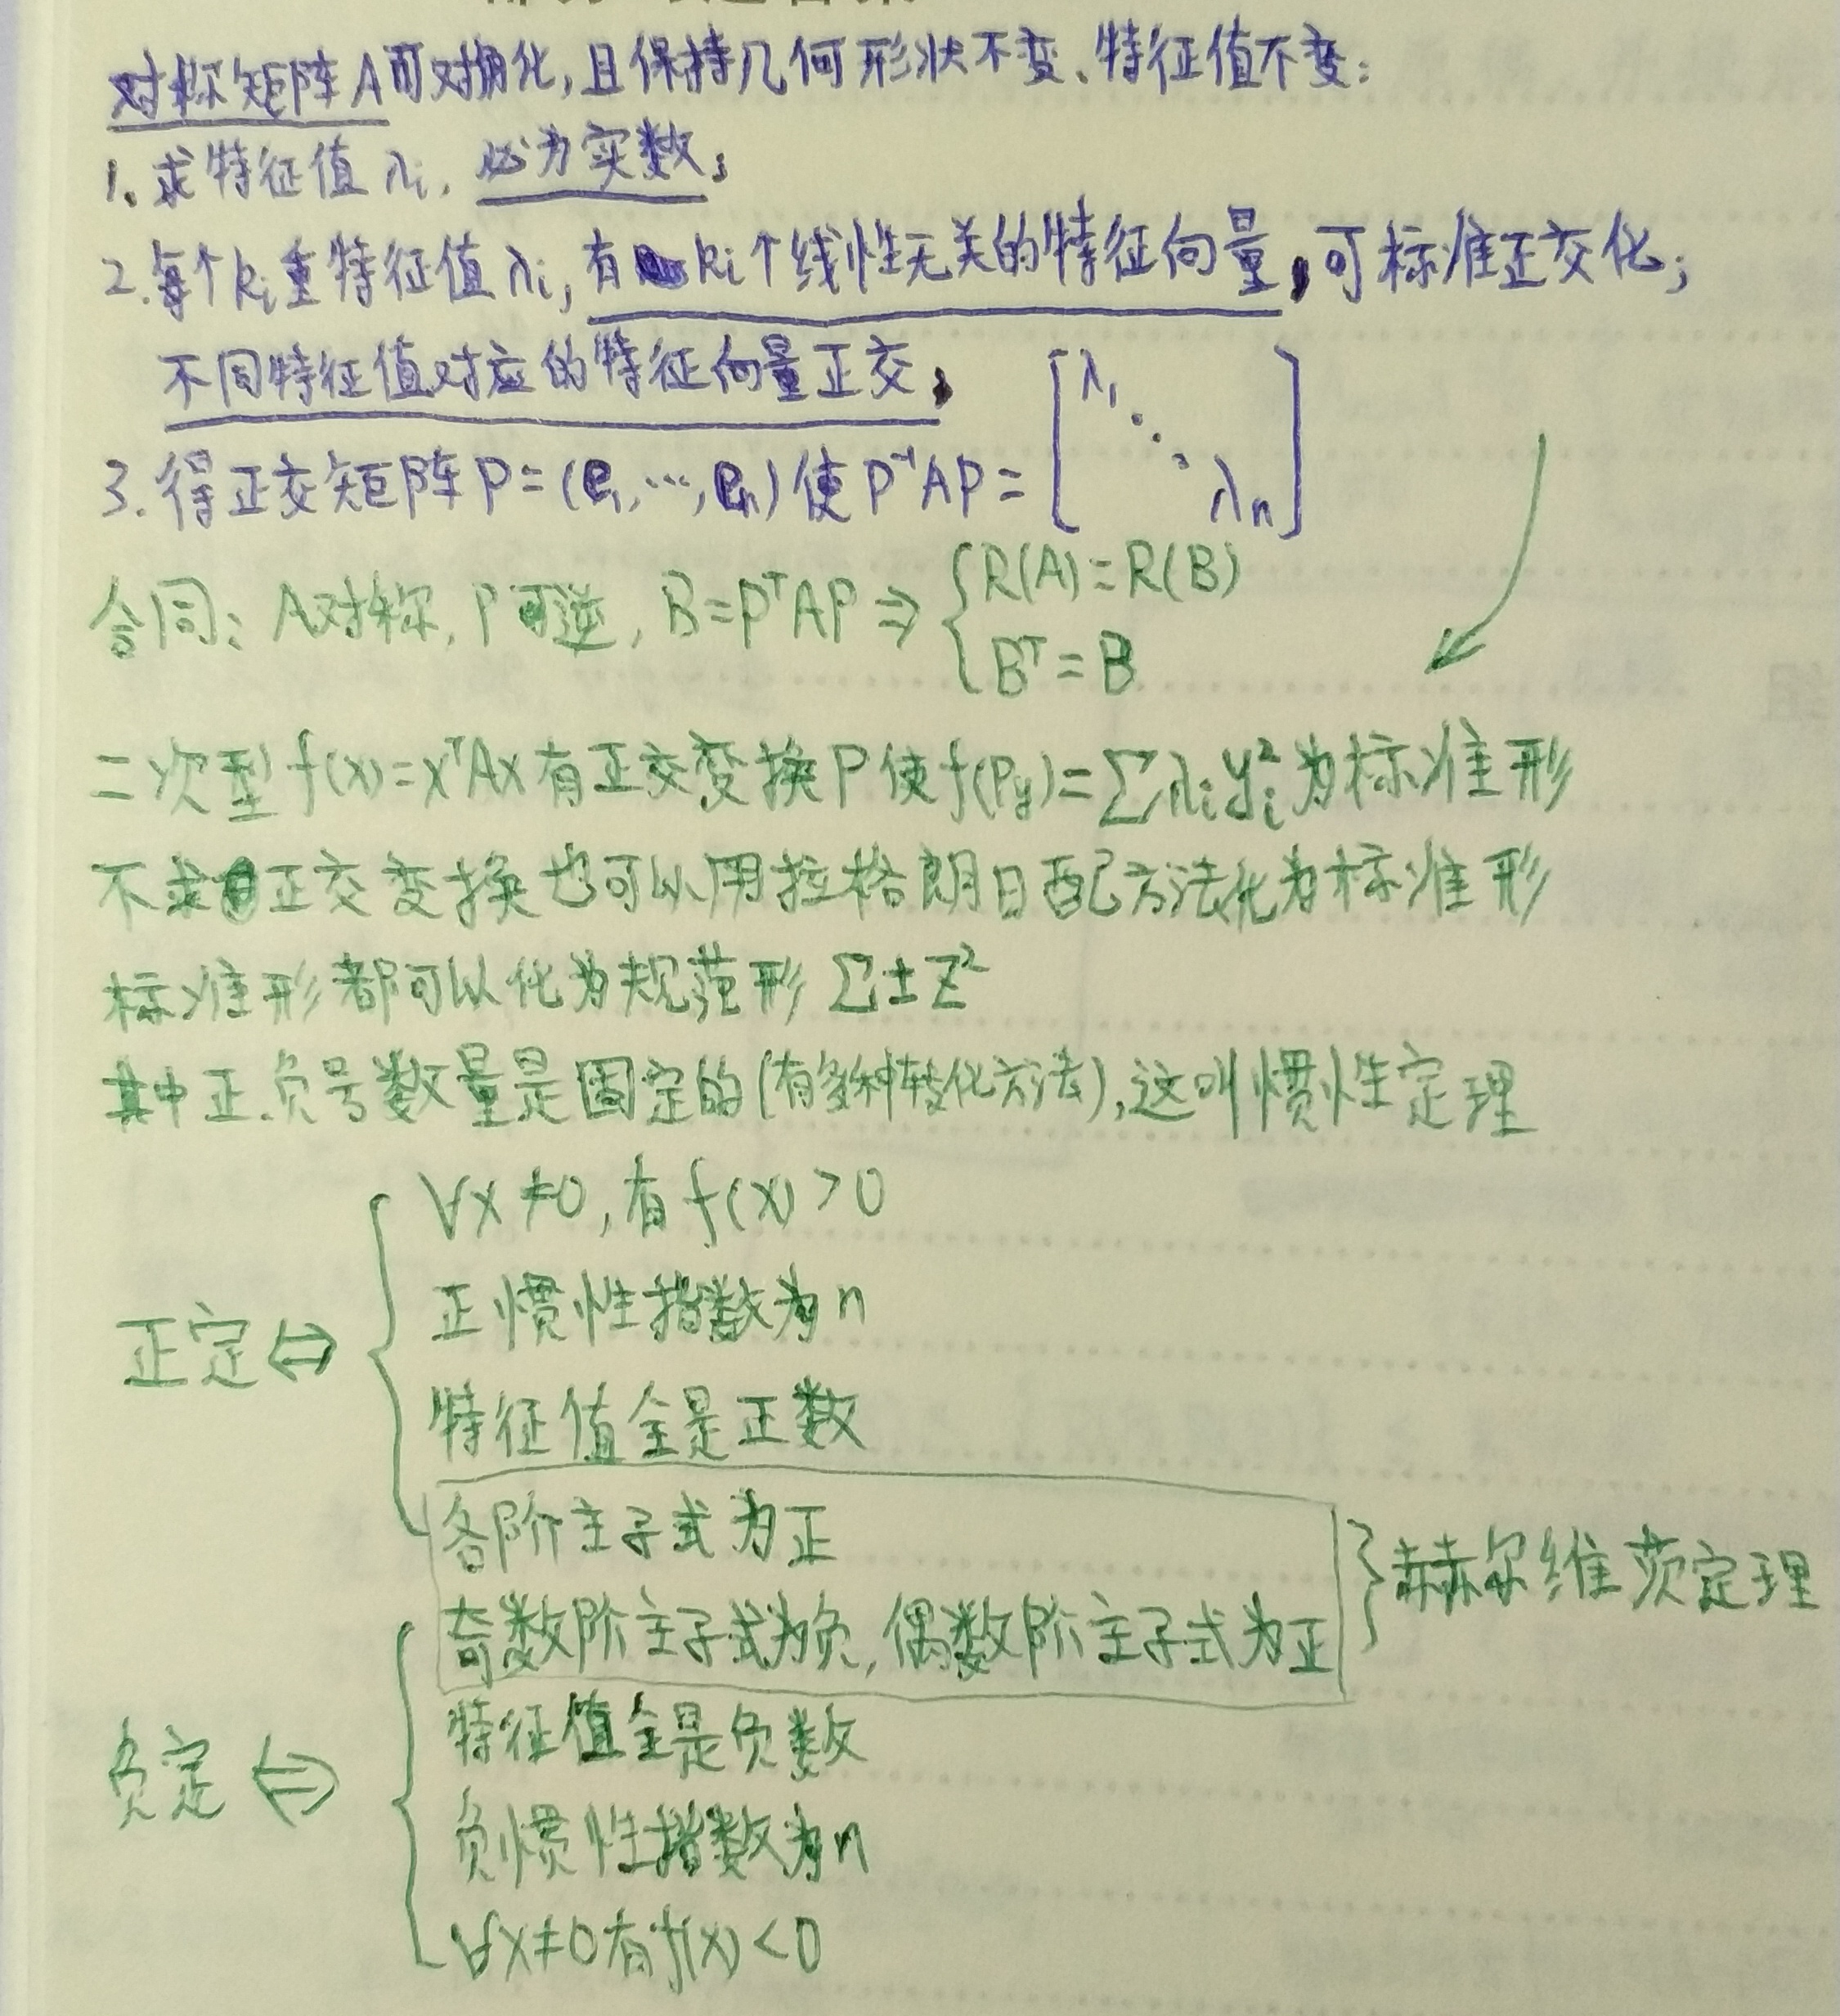 对称矩阵A可对角化,且保持几何形状不变、特征值不变:
1、求特征值λi,必为实数;
2.每个ki重特征值λi,有ki个线性无关的特征向量,可标准正交化;
不同特征值对应的特征向量正交,
3.得正交矩阵P=(e1,…,en)使P⁻¹AP=[λ1 ⋱ λn]
合同:A对称,P可逆,B=PᵀAP⇒{R(A)=R(B)
Bᵀ=B
二次型f(x)=xᵀAx有正交变换P使f(Py)=∑λiyi²为标准形
不求正交变换也可以用拉格朗日配方法化为标准形
标准形都可以化为规范形∑±Z²
其中正.负号数量是固定的(有多种转化方法),这叫惯性定理
正定⇔
∀x≠0,有f(x)>0
正惯性指数为n
特征值全是正数
各阶主子式为正
奇数阶主子式为负,偶数阶主子式为正
}赫尔维茨定理
负定⇔
特征值全是负数
负惯性指数为n
∀x≠0有f(x)<0